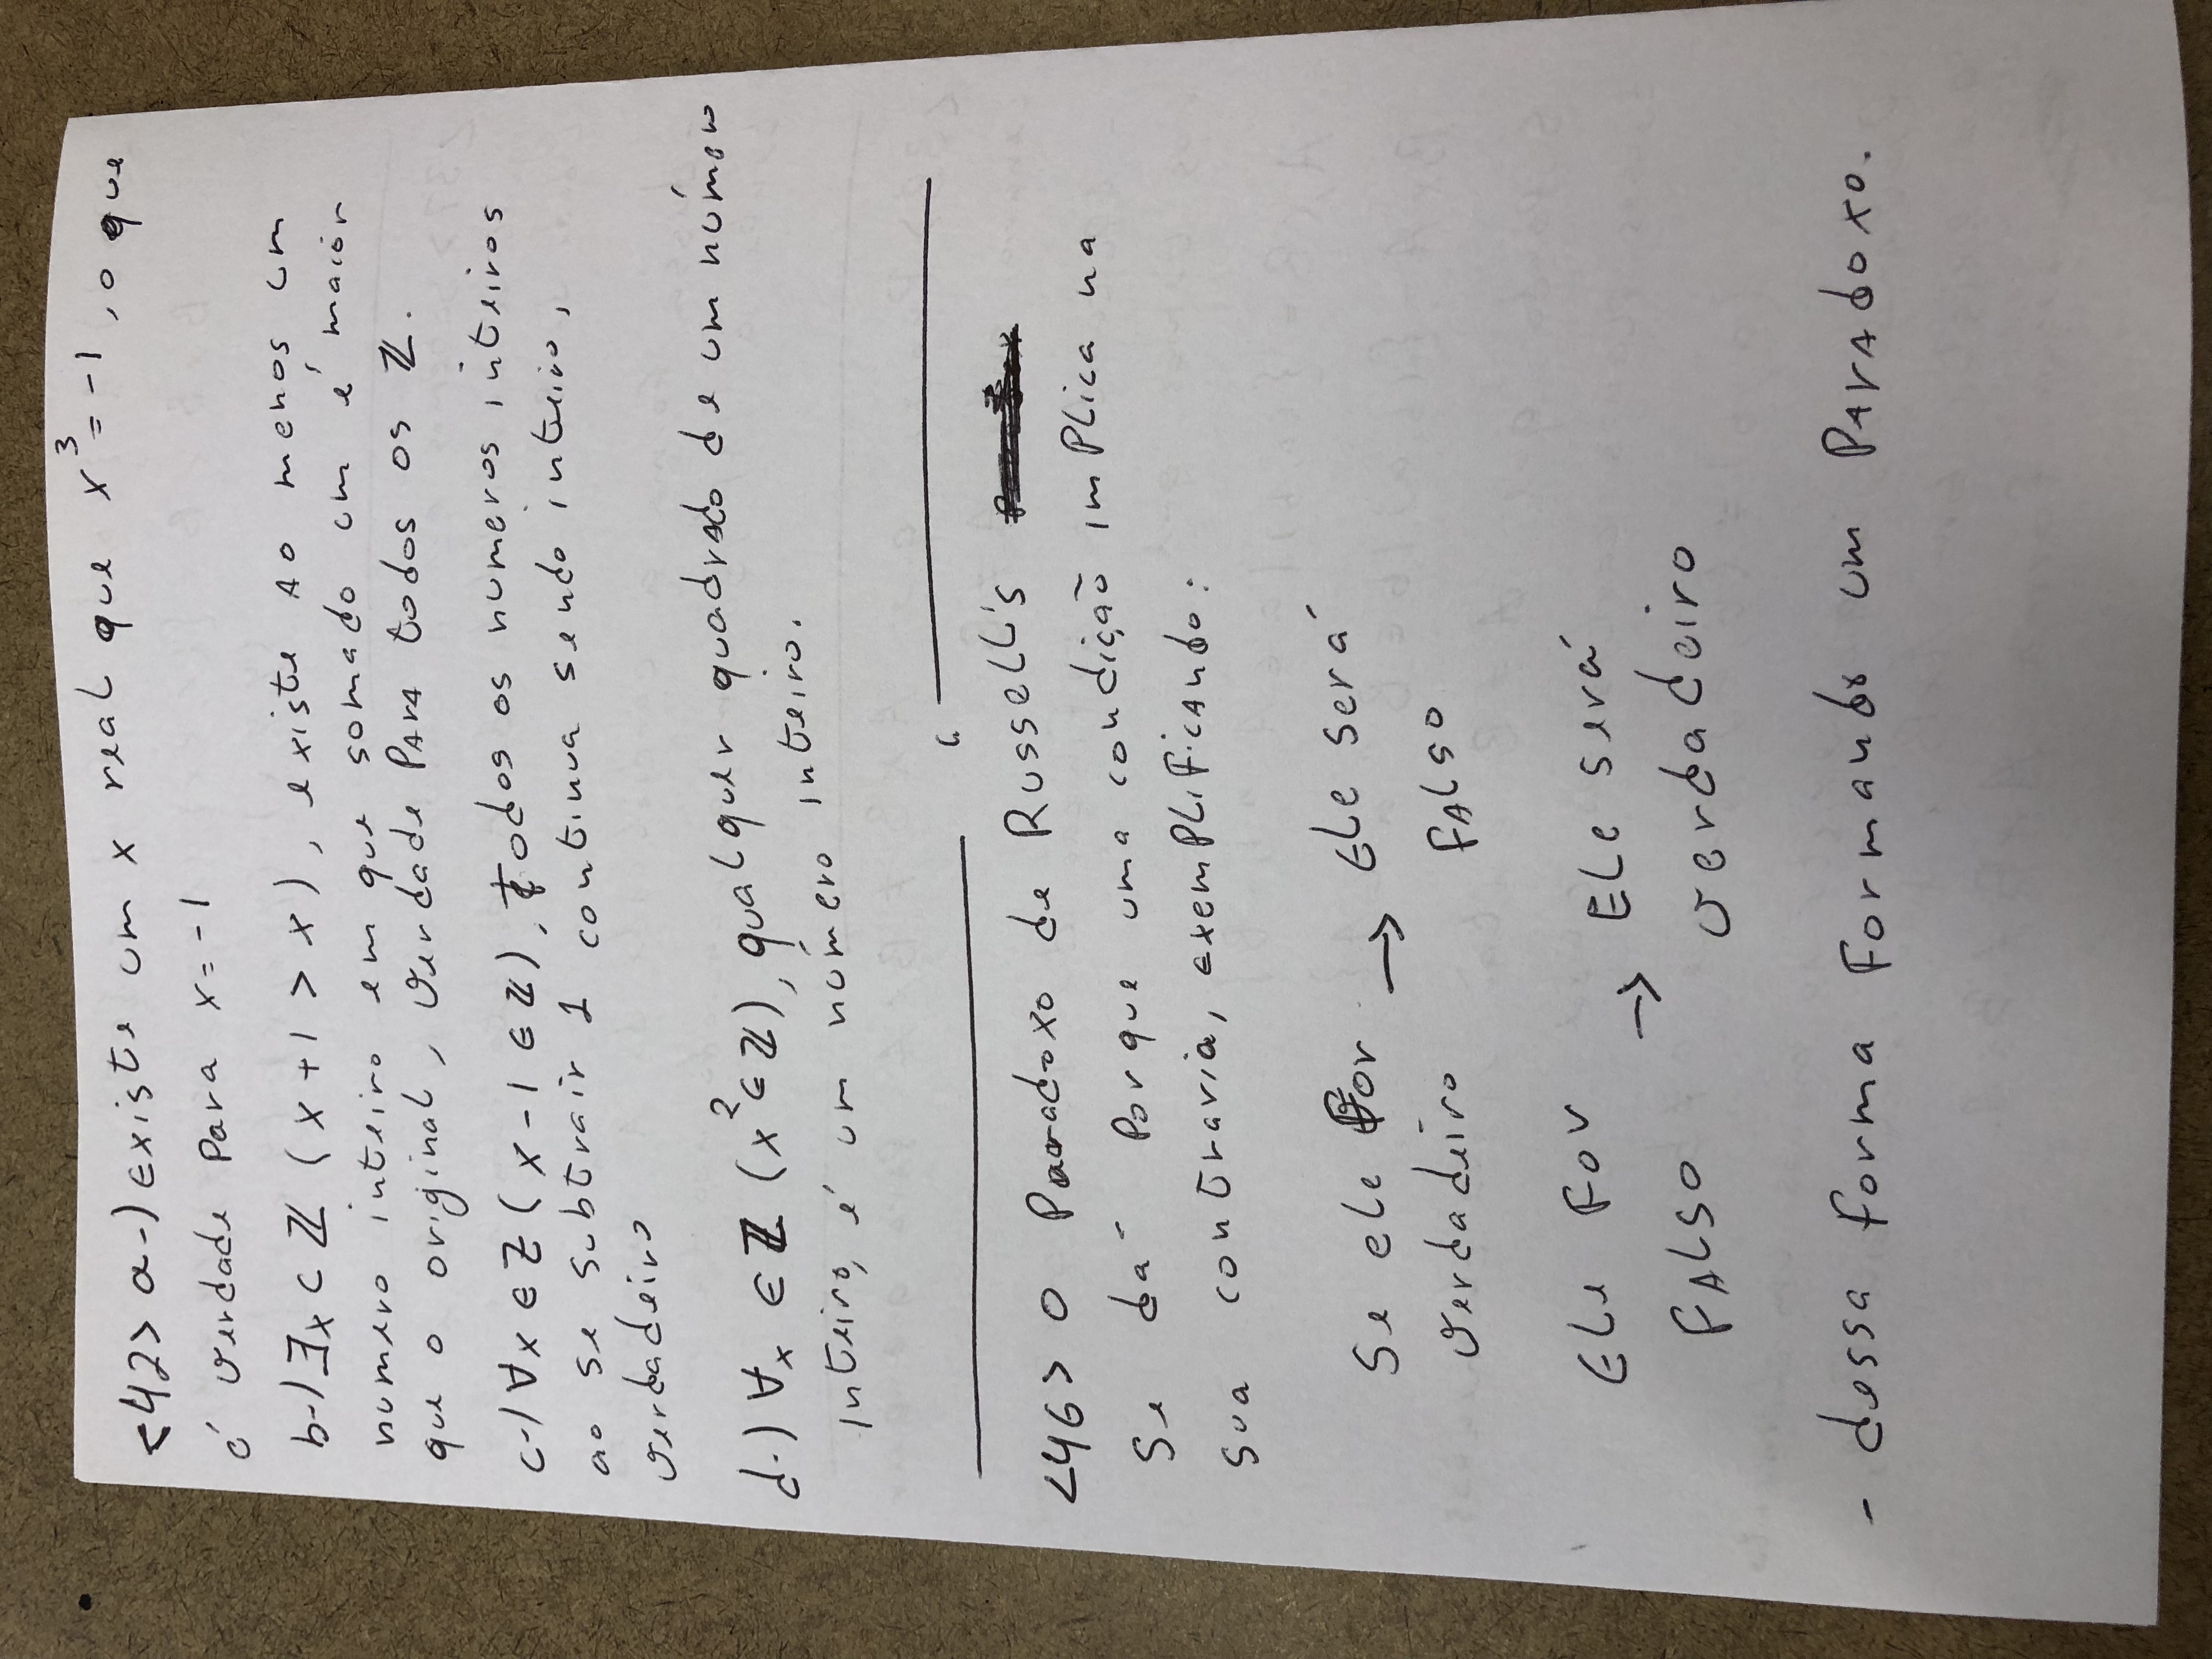 <42> a-) Existe um x real que x³ = -1, o que
é verdade para x = -1
b-) ∃x ⊂ ℤ (x + 1 > x), existe ao menos um
numero inteiro em que somado um é maior
que o original, verdade para todos os ℤ.
c-) ∀x ∈ Z (x - 1 ∈ ℤ), todos os numeros inteiros
ao se subtrair 1 continua sendo inteiro,
verdadeiro
d-) ∀x ∈ ℤ (x² ∈ ℤ), qualquer quadrado de um número
inteiro, é um número inteiro.
<46> O Paradoxo de Russell's
se dá porque uma condição implica na
sua contraria, exemplificando:
Se ele for → Ele será
verdadeiro Falso
Ele for → Ele será
Falso verdadeiro
- dessa forma formando um Paradoxo.